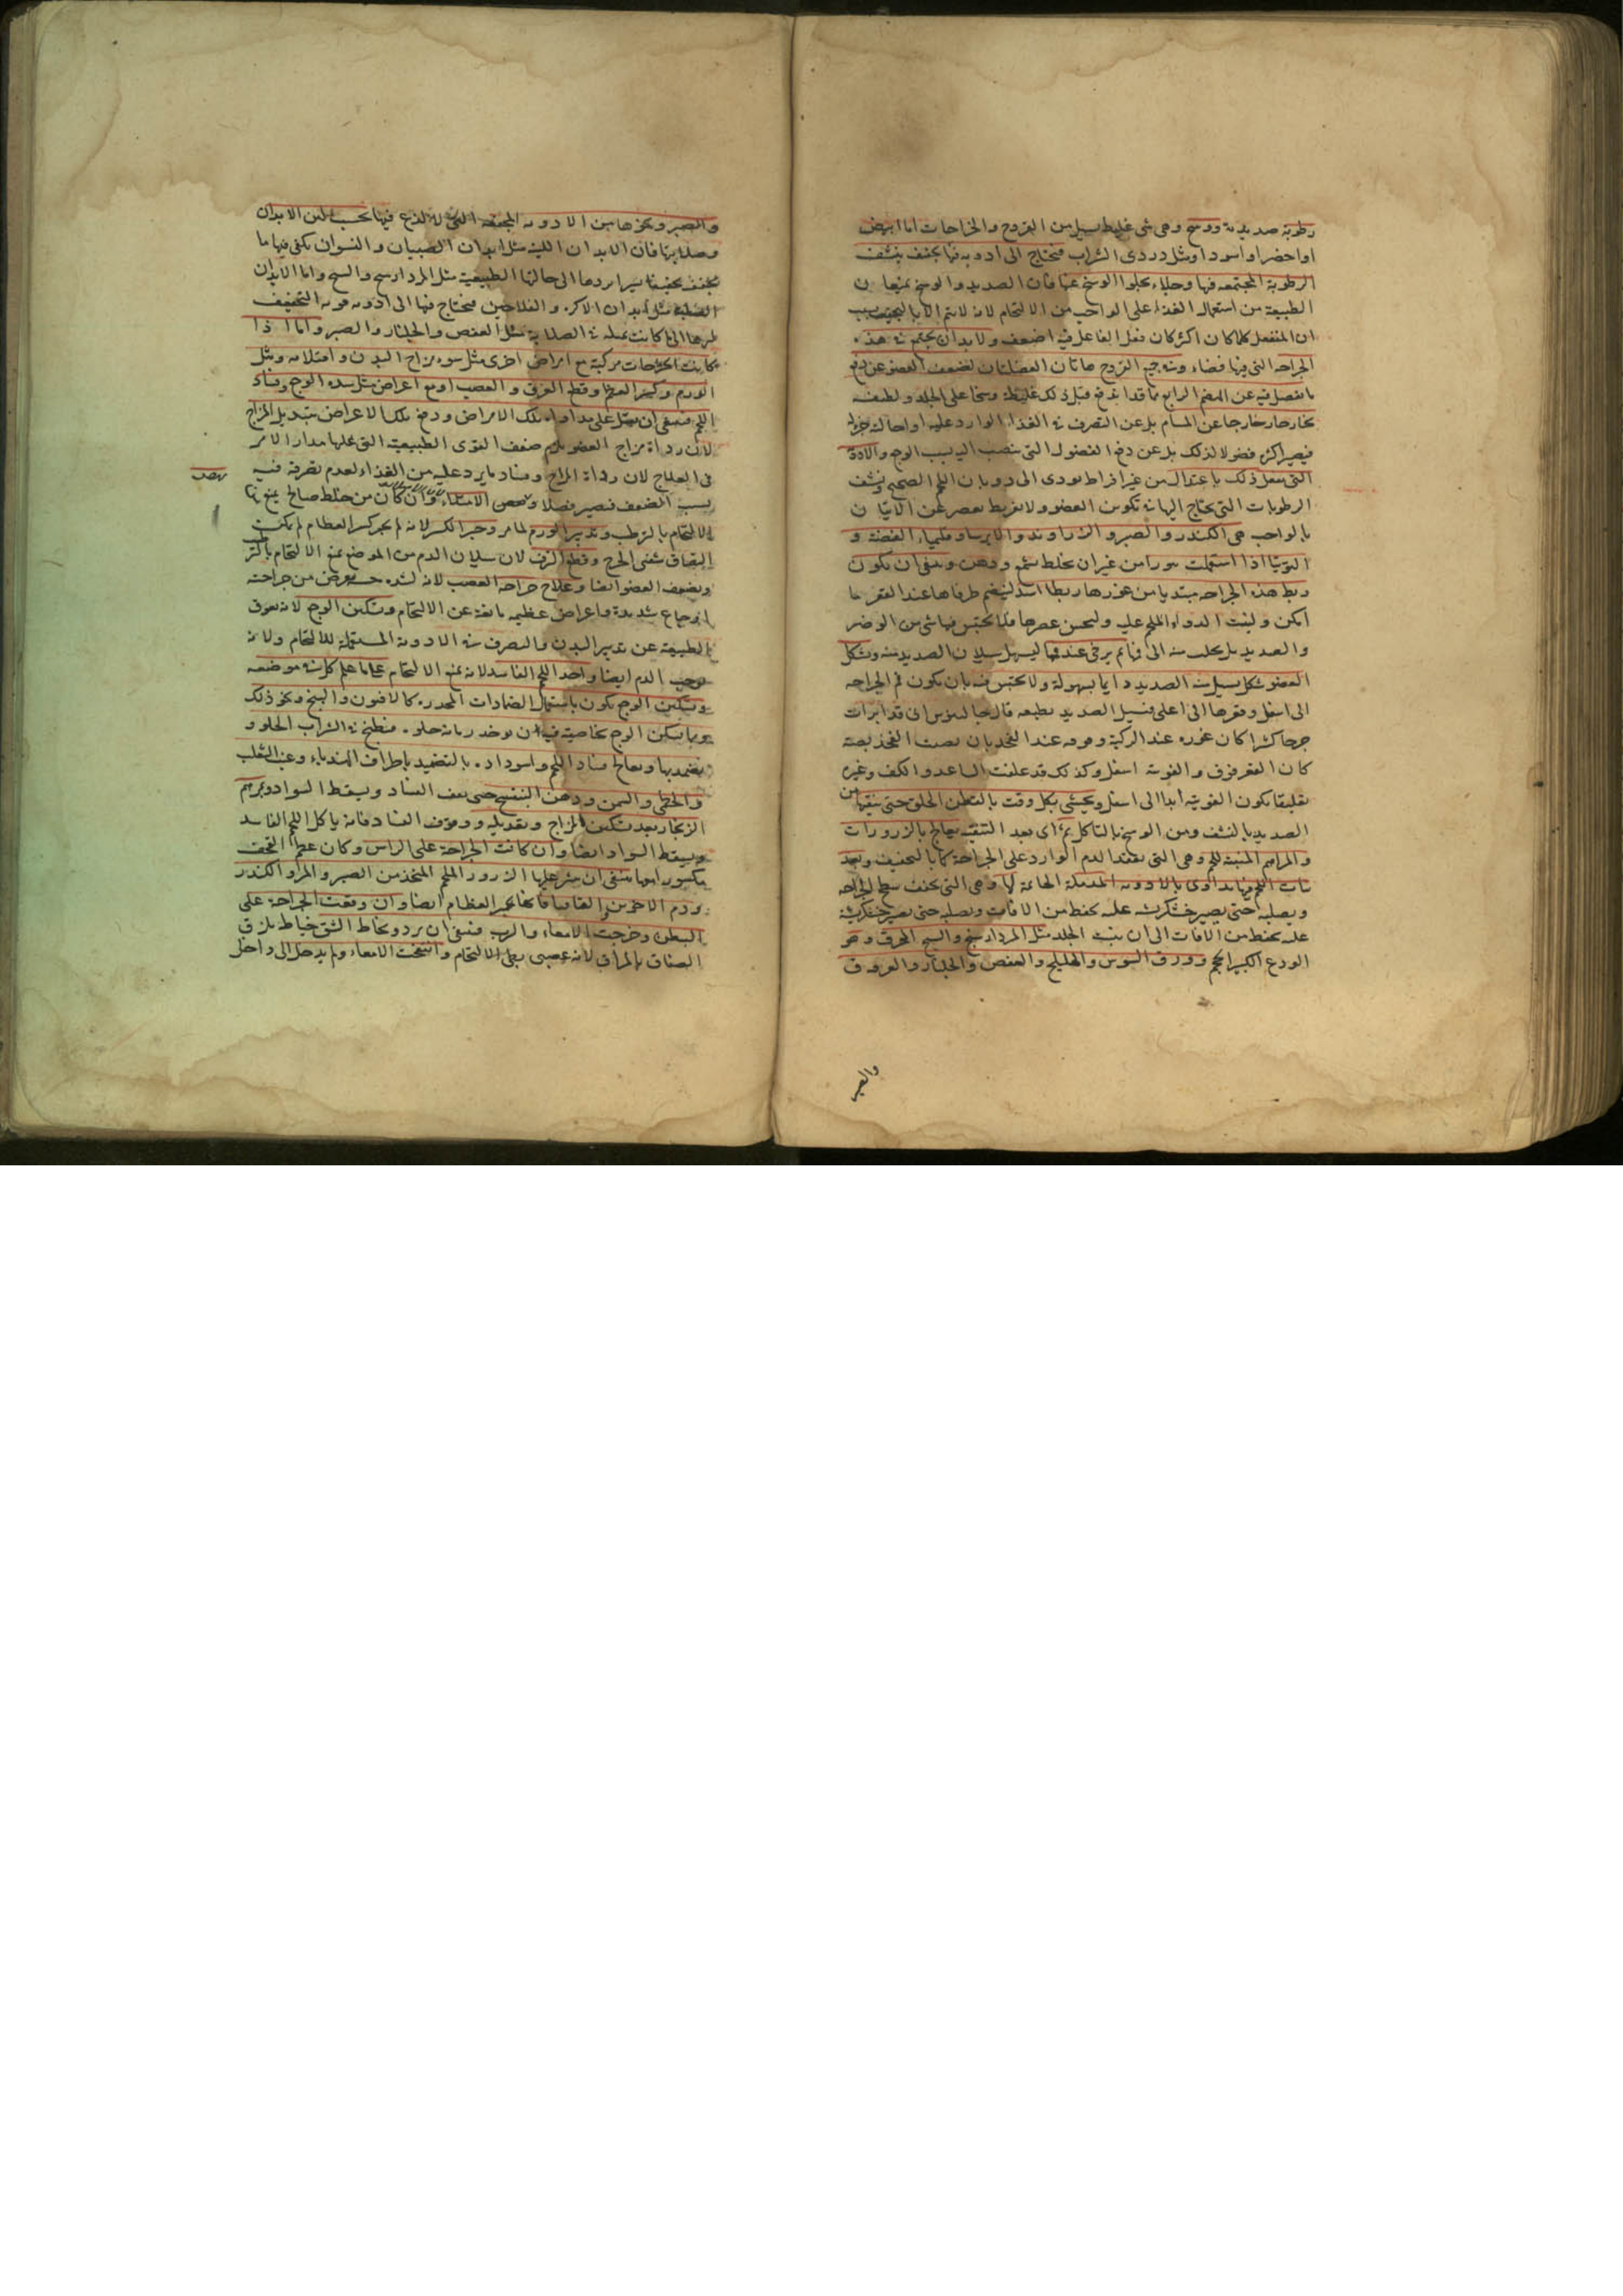 رطوبة صديدية ووسخ وهى شى غليظ يسيل من القروح والخراجات اما ابيض
او اخضر او اسود او مثل دردى الشراب فتحتاج الى ادوية فيها تجفف ينشف
الرطوبة المجتمعة فيها وجلاء يجلوا الوسخ عنها فان الصديد والوسخ يمنعان
الطبيعة من استعمال الغذاء على الواجب من الالتحام لانه لا يتم الا بالتجفيف بسبب
ان المنفعل كلما كان اكثر كان فعل الفاعل فيه اضعف ولا بد ان يجتمع فى هذه
الجراحة التى فيها فضاء وفى جميع القروح هاتان الفضلتان لضعف العضو عن دفع
ما يفصل فيه عن الهضم الرابع مما قد اندفع قبل ذلك غليظه وسخا على الجلد ولطيفه
بخار حار خارجا عن المسام بل عن التصرف فى الغذاء الوارد عليه او احالة جزئه
فيصير اكثره فضولا لذلك بل عن دفع الفضول التى تنصب اليه بسبب الوجع والادوية
التى تفعل ذلك باعتدال من غير افراط يؤدى الى ذوبان اللحم الصحيح ونشف
الرطوبات التى يحتاج اليها فى تكوين العضو ولا تفريط يقصر عن الاتيان
بالواجب هى الكندر والصبر والزراوند والايرسا وقليمياء الفضة و
التوتيا اذا استعملت نثورا من غير ان يخلط بشمع ودهن وينبغى ان يكون
ربط هذه الجراحة مبتديا من غورها ربطا اشد لينضم طرفاها عند القعر ما
امكن ويثبت الدواء الملحم عليه وليحسن عصرها فلا يحتبس فيها شى من الوضر
والصديد بل يجلب منه الى فمها ثم يرخى عند فمها ليسهل سيلان الصديد منه وشكل
العضو شكل يسيل منه الصديد دايما بسهولة ولا يحتبس فيه بان يكون فم الجراحة
الى اسفل وقعرها الى اعلى فيسيل الصديد بطبعه قال جالينوس انى قد ابرات
جرحا كثيرا كان غوره عند الركبة وفوهه عند الفخذ بان نصبت الفخذ نصبة
كان القعر فوق والفوهة اسفل وكذلك قد علقت الساعد والكف وغيره
تعليقا يكون الفوهة ابدا الى اسفل ويحشى بكل وقت بالقطن الخلق حتى ينقيها من
الصديد بالنشف ومن الوسخ بالتاكل ثم اى بعد التنقية يعالج بالزرورات
والمراهم المنبتة للحم وهى التى تعقد الدم الوارد على الجراحة كما بالتجفيف وبعد
نبات اللحم فيها يداوى بالادوية المدملة الخاتمة لها وهى التى تجفف سطح الجراحة
ويصلبه حتى يصير خشكريشة عليه يحفظ من الافات ويصلبه حتى يصير خشكريشة
عليه يحفظ من الافات الى ان ينبت الجلد مثل المرداسنج والشيح المحرق وهو
الودع الكبير الحجم وورق السوس والهليلج والعفص والجلنار والعروق
والصبر
والصبر ونحوها من الادوية المجففة التى لا لذع فيها بحسب لين الابدان
وصلابتها فان الابدان اللينة مثل ابدان الصبيان والنسوان يكفى فيها ما
يجفف تجفيفا يسيرا يردها الى حالها الطبيعية مثل المرداسنج والشيح واما الابدان
الصلبة مثل ابدان الاكره والفلاحين فتحتاج فيها الى ادوية قوية التجفيف
ليردها الى ما كانت عليه فى الصلابة مثل العفص والجلنار والصبر واما اذا
كانت الجراحات مركبة مع امراض اخرى مثل سوء مزاج البدن وامتلائه ومثل
الورم وكسر العظم وقطع العرق والعصب او مع اعراض مثل شدة الوجع وفساد
اللحم فينبغى ان يعمل على مداواة تلك الامراض ودفع تلك الاعراض بتبديل المزاج
لان رداة مزاج العضو يلزم ضعف القوى الطبيعية التى عليها مدار الامر
فى العلاج لان رداة المزاج وفساد ما يرد عليه من الغذاء لعدم تصرفه فيه
بسبب الضعف فيصير فضلا وتنقص الامتلاء وان كان من خلط صالح يمنع
الالتحام بالترطيب وتدبير الورم لما مر وجبر الكسر لانه لم يجبر كسر العظام لم يمكن
التصاق شفتى الجرح وقطع النزف لان سيلان الدم من الموضع يمنع الالتحام
ويضعف العضو ايضا وعلاج جراحة العصب لانه لشدة حسه يعرض من جراحته
اوجاع شديدة واعراض عظيمة مانعة عن الالتحام وتسكين الوجع لانه يعوق
الطبيعة عن تدبير البدن والتصرف فى الادوية المستعملة للالتحام ولانه
يوجب الدم ايضا واخذ اللحم الفاسد لانه يمنع الالتحام على ما علم كل فى موضعه
وتسكين الوجع يكون باستعمال الضمادات المخدرة كالافيون والبنج ونحو ذلك
ومما يسكن الوجع بخاصية فيه ان يوخذ رمانة حلوة فتطبخ فى الشراب الحلو و
يضمد بها ويعالج فساد اللحم واسوداده بالتضميد باطراف الهندباء وعنب الثعلب
والخطمى والسمن ودهن البنفسج حتى يقف الفساد ويسقط السواد وبمرهم
الزنجار بعد تسكين المزاج وتعديله ووقوف الفساد فانه ياكل اللحم الفاسد
ويسقط السواد ايضا وان كانت الجراحة على الراس وكان عظم القحف
مكسورا فيها ينبغى ان ينثر عليها الذرور الملحم المتخذ من الصبر والمر والكندر
ودم الاخوين والقاقيا فانها تجبر العظام ايضا وان وقعت الجراحة على
البطن وخرجت الامعاء والثرب فينبغى ان يرد ويخاط الشق خياط يلزق
الصفاق بالمراق لانه عصبى بطى الالتحام وان انتفخت الامعاء ولم يدخل الى داخل